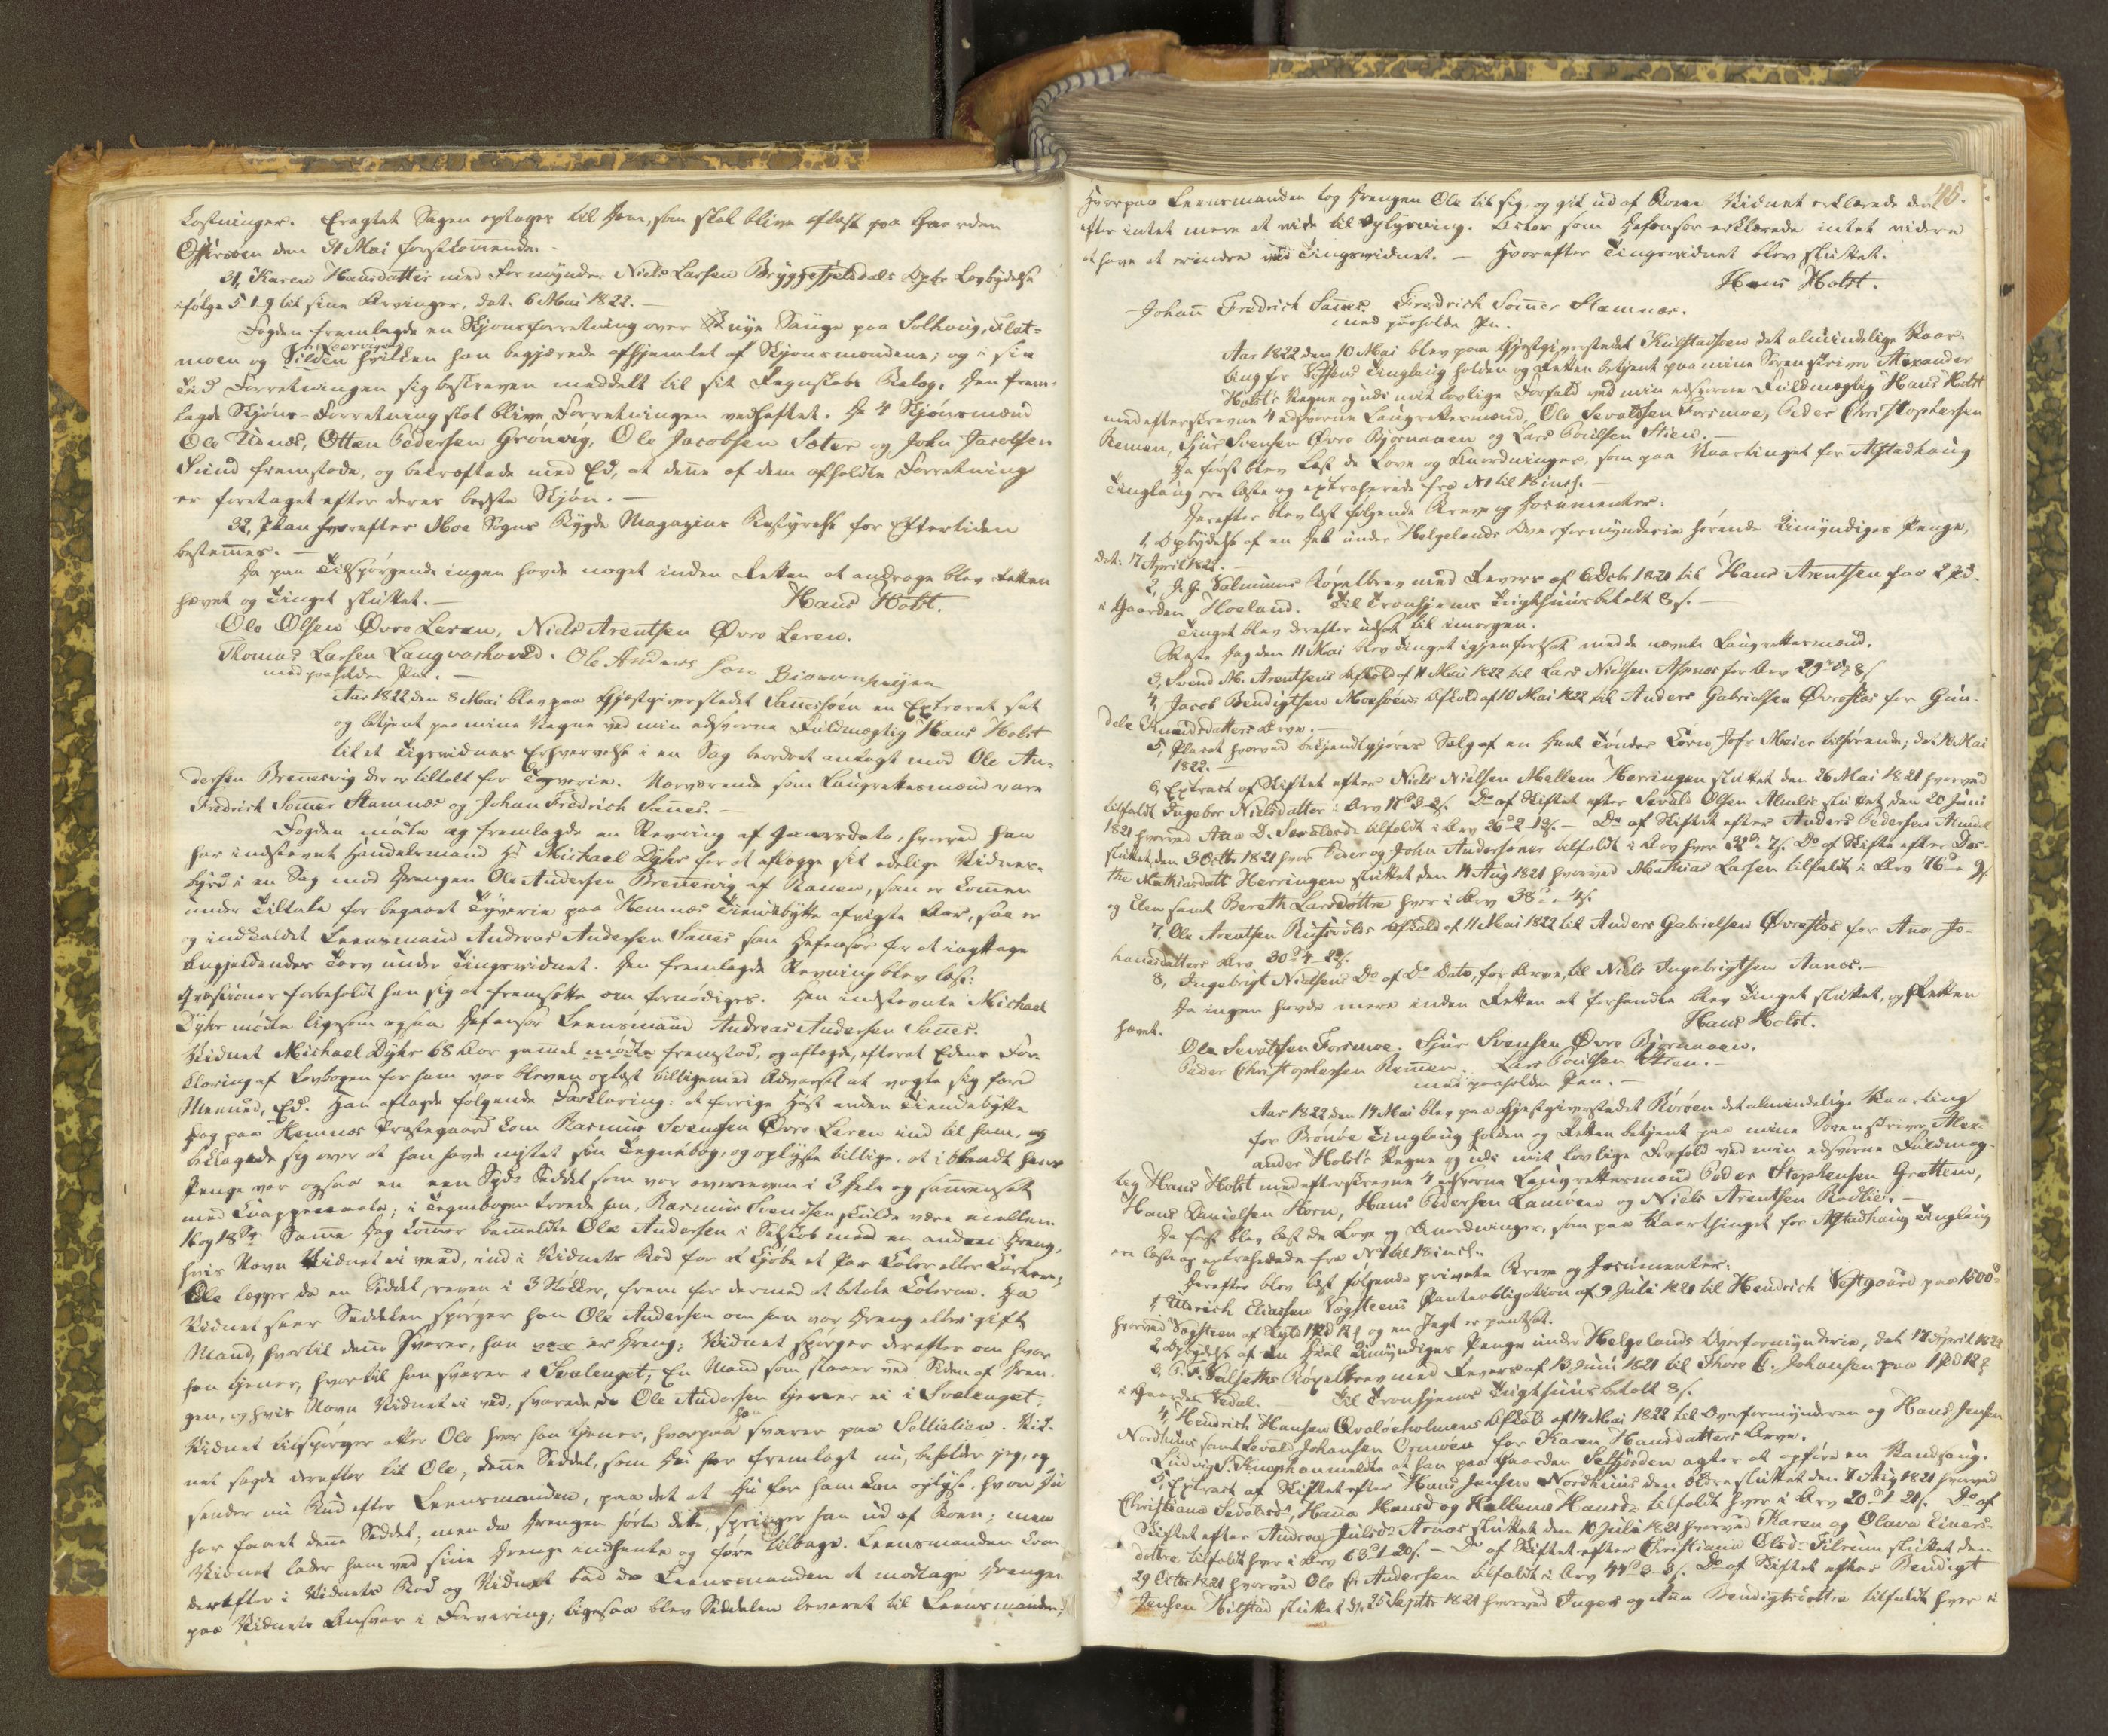 Kostninger. Eragtet Sagen optages til Dom, som skal blive afsagt paa Gaarden
den 31 Mai førstkommende.
31, Karen Hansdatter med Formynder Niels Larsen Bryggefjeldals Opbr Lovbydelse
ifølge 5 1 9 til sine Arvinger, dat. 6 Mai 1822. —
Fogden fremlagde en Skjønsforretning over nye Sauge paa Solhoug, Flat-
moen og Silden hvilken han begjærede afhjemlet af Skjønsmændene; og i sin
Tid Forretningen sig beskreven meddelt til sit Regnskabs Belæg. Den frem-
lagde Skjøns-Forretning skal blive Forretningen vedheftet. De 4 Skjønsmænd
Ole Utnæs, Otten Pedersen Grønvig, Ole Jacobsen Sæter og John Jacobsen
Sund fremstode, og bekræftede med Ed, at denne af dem afholdte Forretning
er foretaget efter deres bedste Skjøn. —
32, Plan hvorefter Moe Sogns Bygde Magazins Bestyrelse for Eftertiden
bestemmes. —
Da paa Tilspørgende ingen havde noget inden Retten at andrage blev Retten
hævet og Tinget sluttet. — Hans Holst.
Ole Olsen Øvre Leren, Niels Arentsen Øvre Leren.
Thomas Larsen Langvashoved. Ole Anders Søn
med paaholden Pen. —
Aar 1822 den 8 Mai blev paa Gjæstgiverstedet Sannesøen en Extraret sat
og betjent paa mine Vegne ved min edsvorne Fuldmægtig Hans Holst
til et Tingsvidnes Erhvervelse i en Sag beordret anlagt mod Ole An-
dersen Brennesvig der er tiltalt for Tyverie. Nærværende som Laugrettesmænd vare
Fredrich Somer Stamnæs og Johan Fredrich Sannes. —
Fogden mødte og fremlagde en Stevning af Gaarsdato, hvorved han
har indstevnet Handelsmand Hr Michael Dyhr for at aflægge sit edelige Vidnes-
byrd i en Sag mod Drengen Ole Andersen Brennesvig af Ranen, som er kommen
under Tiltale for begaaet Tyverie paa Hemnæs Tiendebytte afvigte Aar, saa er
og indkaldet Leensmand Andreas Andersen Sannes som Defensor for at iagttage
Angjeldendes Tarv under Tingsvidnet. Den fremlagde Stevning blev læst:
Qvæstioner forbeholdt han sig at fremsætte om fornødiges. Den indstevnte Michael
Dyhr mødte ligesom ogsaa Defensor Leensmand Andreas Andersen Sannes.
Vidnet Michael Dyhr 68 Aar gammel mødte fremstod, og aflagde, efterat Edens For-
klaring af Lovbogen for ham var bleven oplæst tilligemed Advarsel at vogte sig for
Meeneed, Ed. Han aflagde følgende Forklaring: at forrige Høst anden Tiendebytte
Dag paa Hemnæs Præstegaard kom Rasmus Svendsen Øvre Leren ind til ham, og
beklagede sig over at han havde mistet sin Tegnebog, og oplyste tillige, at iblandt hans
Penge var ogsaa en een Spds Seddel som var overreven i 3 Dele og sammensat
med Knappenaale; i Tegnebogen troede han, Rasmus Svendsen skulde være mellem
16 og 18 Spd. Samme Dag kommer bemeldte Ole Andersen i Selskab med en anden Dreng,
hvis Navn Vidnet ei veed, ind i Vidnets Bod for at kjøbe et Par
Ole lægger da en Seddel, reven i 3 Stykker, frem for dermed at betale Da
Vidnet seer Seddelen spørger han Ole Andersen om han var Dreng eller gift
Mand, hvortil denne svarer, han var er Dreng; Vidnet spørger derefter om hvor
han tjener, hvortil han svarer i Svalenget, En Mand som staaer ved Siden af Dren-
gen, og hvis Navn Vidnet ei ved, svarede da Ole Andersen tjener ei i Svalenget;
Vidnet tilspørger atter Ole hvor han tjener, hvorpaa han svarer paa Sollielien. Vid-
net sagde derefter til Ole, denne Seddel, som Du har fremlagt nu, beholder jeg, og
sender nu Bud efter Leensmanden, paa det at Du for ham kan oplyse, hvor Du
har faaet denne Seddel; men da Drengen hørte dette, springer han ud af Boen; men
Vidnet lader ham ved sine Drenge indhente og føre tilbage. Leensmanden kom
derefter i Vidnets Bod og Vidnet bad da Leensmanden at modtage Drengen
paa Vidnets Ansvar i Forvaring; ligesaa blev Seddelen leveret til Leensmanden;
45.
Hvorpaa Leensmanden tog Drengen Ole til sig, og gik ud af Boen Vidnet erklærede der-
efter intet mere at vide til Oplysning. som Defensor erklærede intet videre
at have at erindre ved Tingsvidnet. — Hvorefter Tingsvidnet blev sluttet.
Hans Holst.
Johan Fredrich Sannes. Fredrich Somer Stamnæs.
med paaholden Pen.
Aar 1822 den 10 Mai blev paa Gjæstgiverstedet Kulstadsøen det almindelige Vaar-
ting for Tinglaug holden og Retten betjent paa mine Sorenskriver Alexander
Holst's Vegne og udi mit lovlige Forfald ved min edsvorne Fuldmægtig Hans Holst
med efterskrevne 4 edsvorne Laugrettesmænd, Ole Sevaldsen Forsmoe, Peder Christophersen
Remen, Sjur Svensen Øvre Bjørnaaen og Lars Poulsen Stien. —
Da først blev læst de Love og Anordninger, som paa Vaartinget for Alstadhaug
Tinglaug ere læste og extraherede fra No 1 til 18 incl. —
Derefter blev læst følgende Breve og Documenter:
1, Opbydelse af en Deel under Helgelands Overformynderie hørende Umyndiges Penge,
dat. 17 April 1822. —
2, J. J. Dalmuns Bøxelbrev med Revers af 6 Decbr 1821 til Hans Arentsen paa 2 Pd.
i Gaarden Hoeland. Til Tronhjems Tugthuus betalt 8 s. —
Tinget blev derefter udsat til imorgen.
Næste Dag den 11 Mai blev Tinget igjen fortsat med de nævnte Laugrettesmænd.
3, Svend M. Arentsens Afkald af 11 Mai 1822 til Lars Nielsen Aspnæs for Arv 29
4, Jacob Bendigtsen Mosøens Afkald af 10 Mai 1822 til Anders Gabrielsen Øvrefløs for Gun-
dele Amundsdatters Arv. —
5, Placat hvorved bekjendtgjøres Salg af en Deel Tønder Korn Jofr Meier tilhørende; dat 10 Mai
1822. —
6, Extract af Skiftet efter Niels Nielsen Mellem Herringen sluttet den 26 Mai 1821 hvorved
tilfaldt Ingebor Nielsdatter i Arv Do af Skiftet efter Sevald Olsen Almlie sluttet den 20 Juni
1821 hvorved Ane D. Sevaldsdr tilfaldt i Arv Do af Skiftet efter Anders Pedersen
sluttet den 3 Octbr 1821 hvor Peder og John Andersønner tilfaldt i Arv hver Do af Skifte efter Dor-
the Mathiasdatt Herringen sluttet den 14 Aug 1821 hvorved Mathias Larsen tilfaldt i Arv
og Elen samt Bereth Larsdøttre hver i Arv
7, Ole Arentsen Rusvolds Afkald af 11 Mai 1822 til Anders Gabrielsen Øvrefløs for Ane Jo-
hanesdatters Arv
8, Ingebrigt Nielsens Do af Do Dato, for Arv, til Niels Ingebrigtsen Aanes. —
Da ingen havde mere inden Retten at forhandle blev Tinget sluttet, og Retten
hævet. Hans Holst.
Ole Sevaldsen Forsmoe. Sjur Svensen Øvre Bjørnaaen.
Peder Christophersen Remen. Lars Poulsen Stien. —
med paaholden Pen. —
Aar 1822 den 14 Mai blev paa Gjestgiverstedet Rørøen det almindelige Vaarting
for Brønøe Tinglaug holden og Retten betjent paa mine Sorenskriver Alex-
ander Holst's Vegne og udi mit lovlige Forfald ved min edsvorne Fuldmæg-
tig Hans Holst med efterskrevne 4 edsvorne Laugrettesmænd Peder Stephensen Grøttem,
Hans Danielsen Horn, Hans Pedersen Lamøen og Niels Arentsen Rødlie. —
Da først blev læst de Love og Anordninger, som paa Vaarthinget for Alstadhaug Tinglaug
ere læste og extraherede fra No 1 til 18 incl.
Derefter blev læst følgende private Breve og Documenter:
1, Ulrich Eliassen Vægsteens Panteobligation af 9 Julii 1821 til Hendrich Vestgaard paa 1500
hvorved Vægsteen af Skyld og en Jagt er pantsat.
2, Opbydelse af en Deel Umyndiges Penge under Helgelands Overformynderie, dat 17 April 1822
3, P. F. Falseths Bøxelbrev med Revers af 13 Juni 1821 til Thore E. Johansen paa
i Gaarden Vedal. Til Tronhjems Tugthuus betalt 8 s.
4, Hendrich Hansen Qvaløeholmens Afkald af 14 Mai 1822 til Overformynderen og Hans Jensen
Nordhuus samt Sevald Johansen Ormøen for Karen Hansdatters Arv.
Ludvig S. Knoph anmeldte at han paa Gaarden Selfjorden agter at opføre en Vandsaug.
5, Extract af Skiftet efter Hans Jensen Nordhuus den sluttet den 7 Aug 1821 hvorved
Christiane Sevaldsdr, Hanna Hansdr og Hansdr tilfaldt hver i Arv Do af
Skiftet efter Andrea Julsdr Arnæs sluttet den 10 Julii 1821 hvorved Karen og Olava Einers-
døttre tilfaldt hver i Arv — Do af Skiftet efter Christiana Olsdr Tilrum sluttet den
29 Octbr 1821 hvorved Ole P. Andersen tilfaldt i Arv Do af Skiftet efter Bendigt
Jensen Hilstad sluttet d. 25 Septbr 1821 hvorved Inger og Ane Bendigtsdøttre tilfaldt hver i